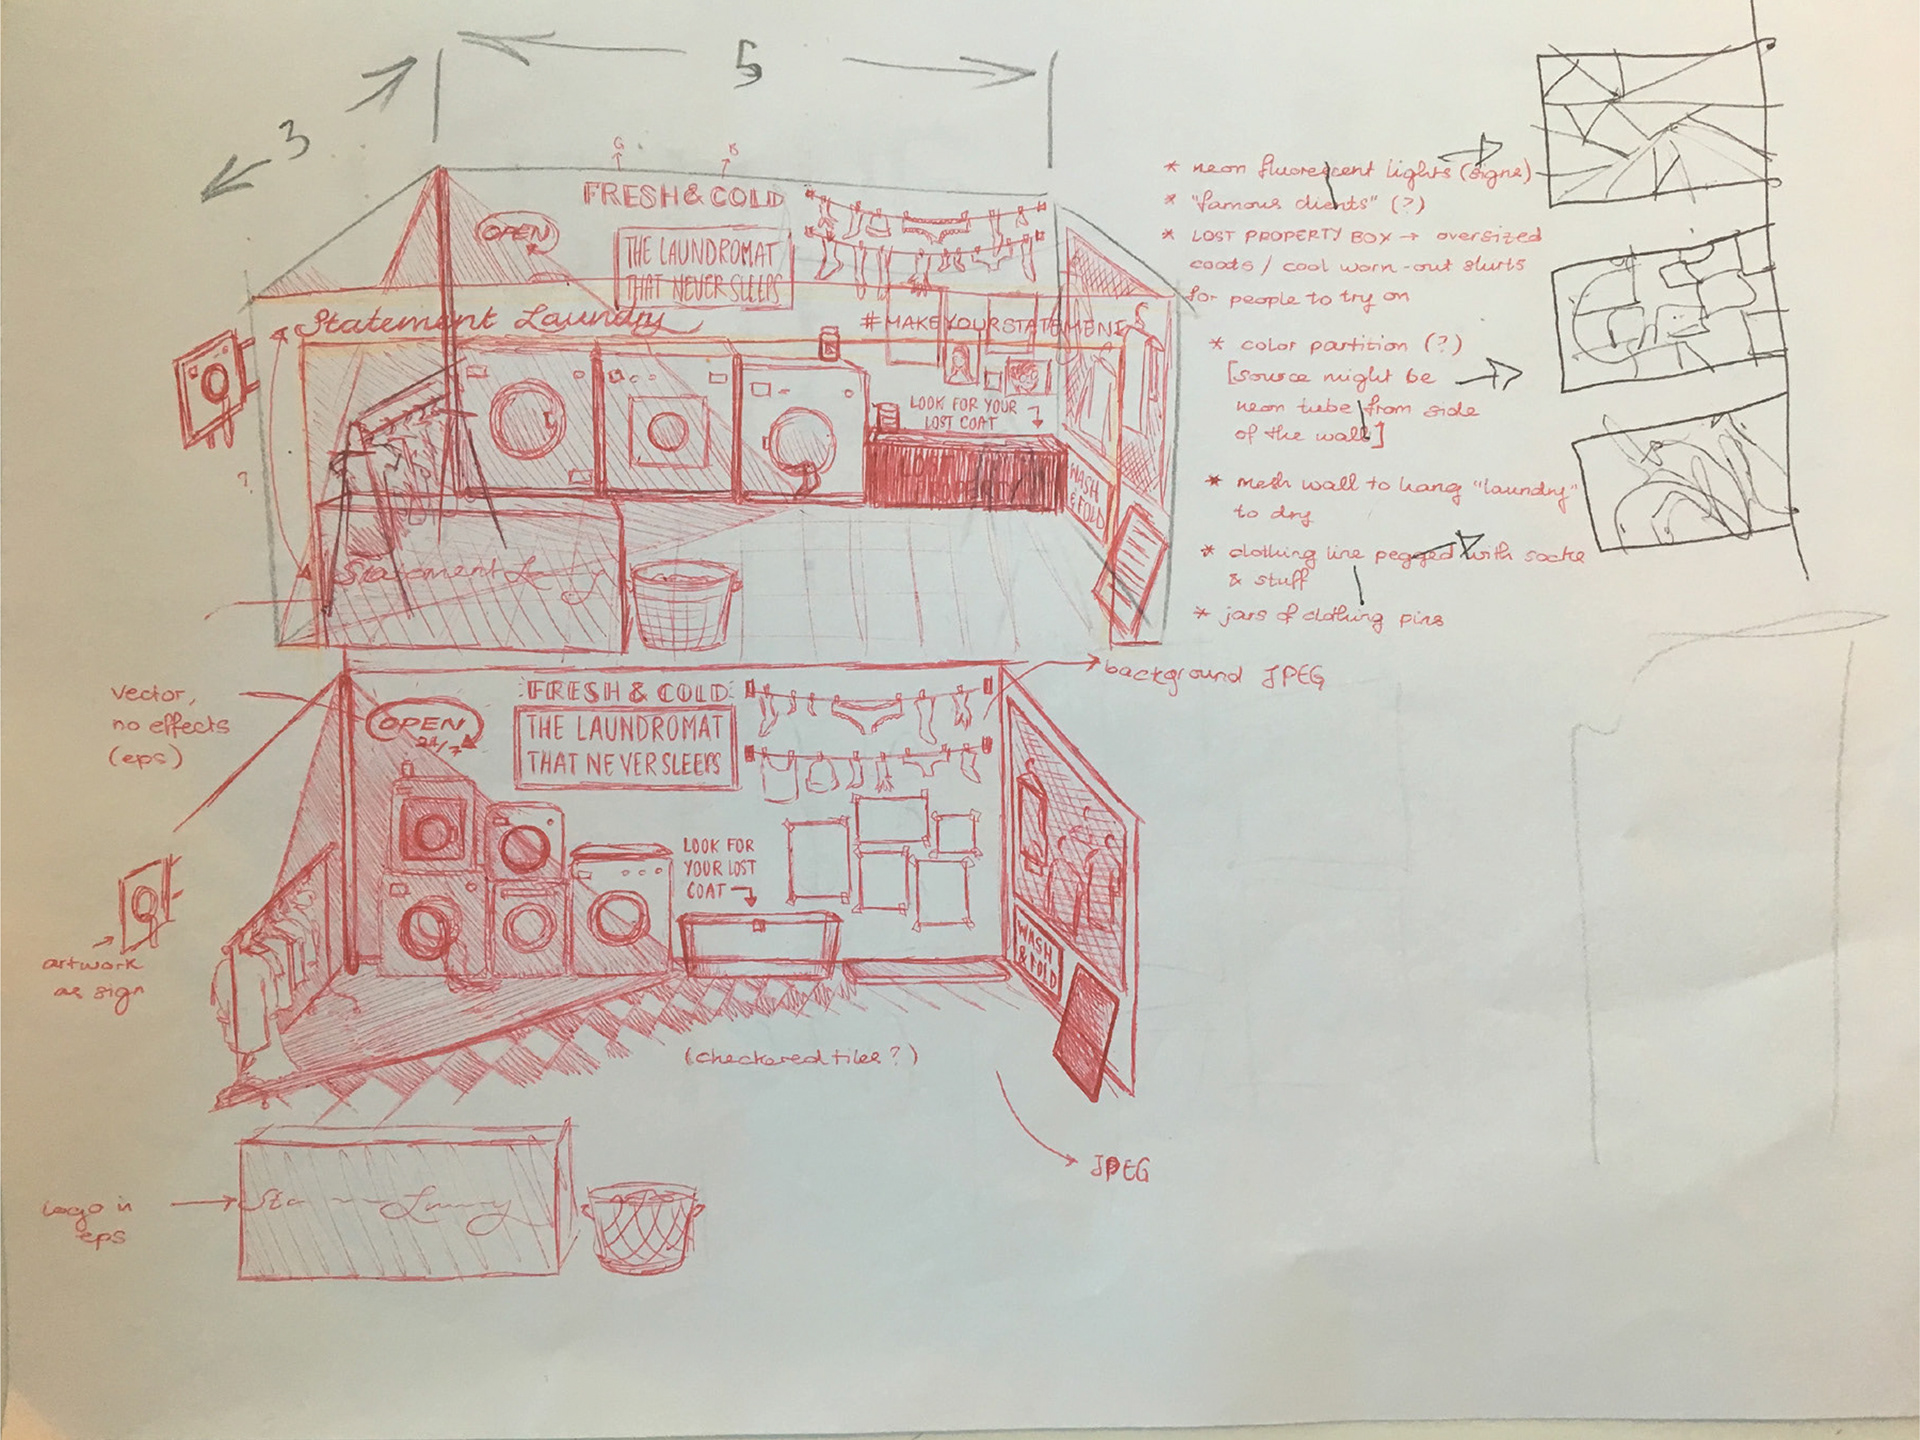 5
3
G
B
FRESH & COLD
OPEN
THE LAUNDROMAT
THAT NEVER SLEEPS
Statement Laundry
#MAKEYOURSTATEMENT
LOOK FOR YOUR
LOST COAT
LOST
PROPERTY
WASH
& FOLD
?
Statement
* neon fluorescent lights (signs)
* "famous clients" (?)
* LOST PROPERTY BOX → oversized
coats / cool worn-out shirts
for people to try on
* color partition (?)
[source might be
neon tube from side
of the wall]
* mesh wall to hang "laundry"
to dry
* clothing line pegged with socks
& stuff
* jars of clothing pins
vector,
no effects
(eps)
background JPEG
FRESH & COLD
OPEN
24/7
THE LAUNDROMAT
THAT NEVER SLEEPS
LOOK FOR
YOUR LOST
COAT
WASH
& FOLD
artwork
as sign
(checkered tiles?)
JPEG
logo in
eps